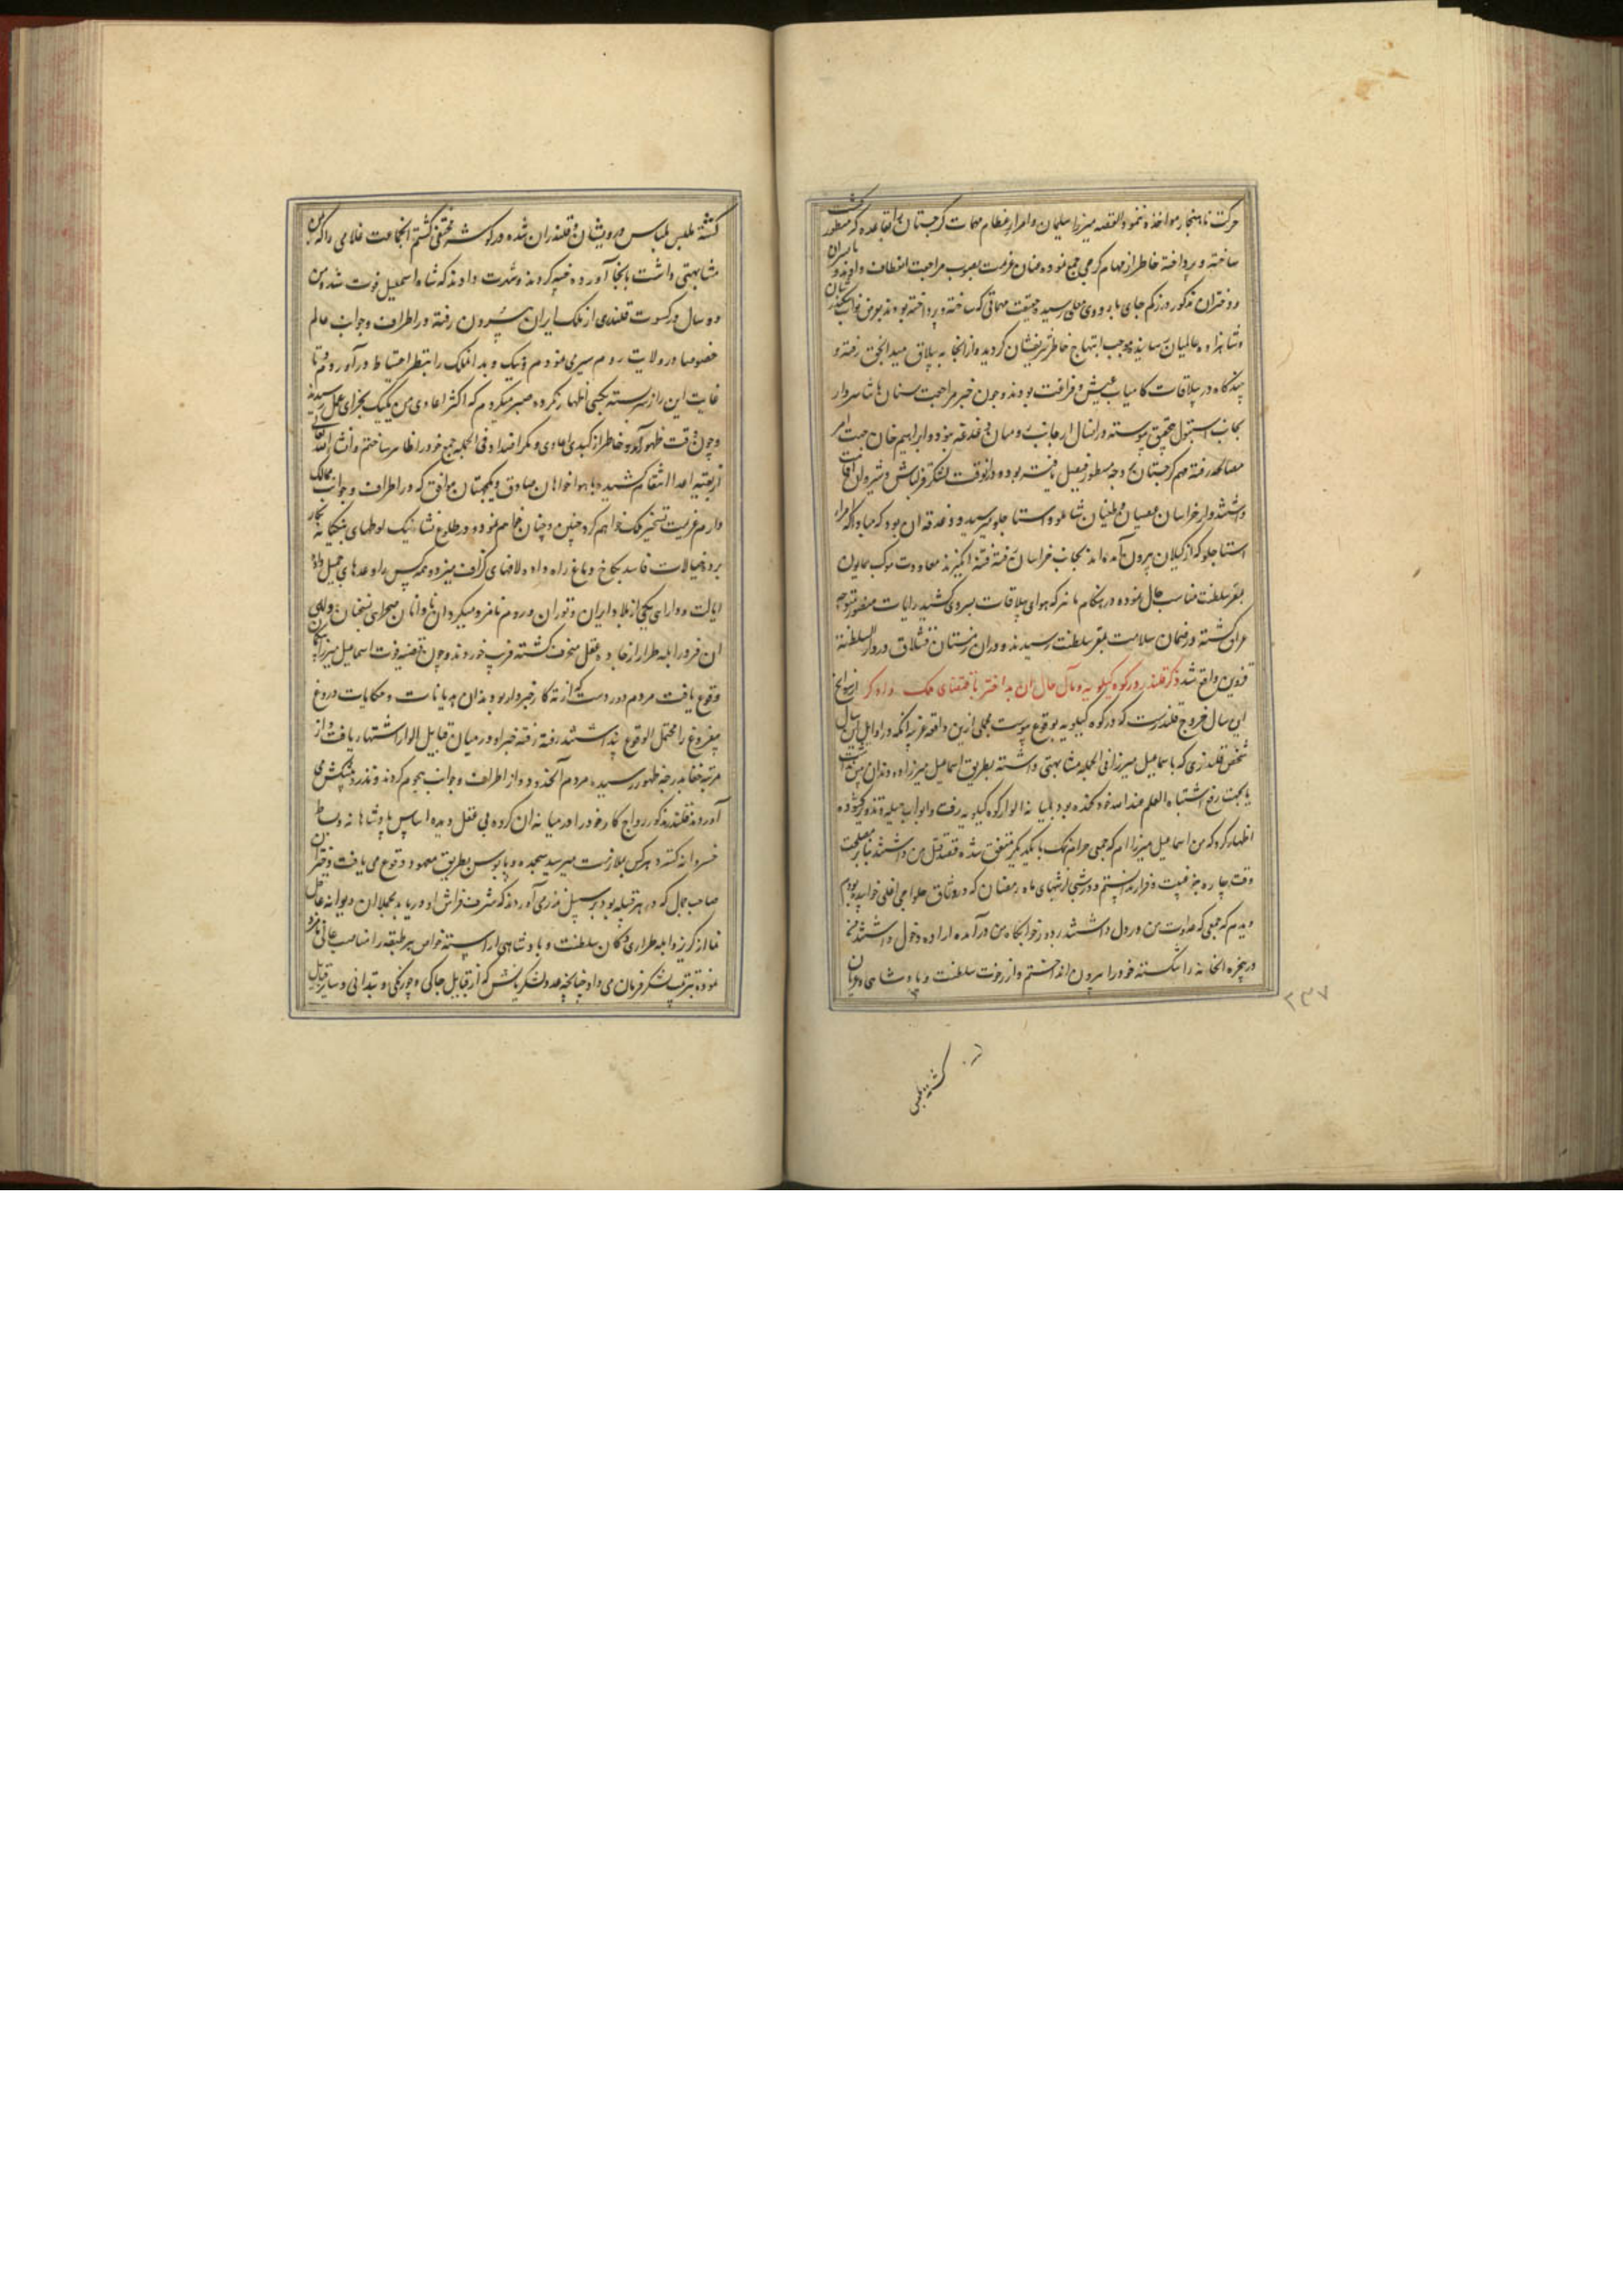 حرکت ناهنجار مواخذه ننمود القصه میرزا سلیمان و امراء عظام مهمات گرجستان را بقاعده که مسطور گشت
ساخته و پرداخته خاطر از مهام گرجی جمع نموده عنان عزیمت بصوب مراجعت انعطاف دادند و با پسران
و دختران مذکور در زکم جای باردوی معلی رسید حقیقت مهماتی که ساخته و پرداخته بودند بعرض نواب سکندر شان
و شاهزاده عالمیان رسانیده موجب ابتهاج خاطر شریفشان گردید و از آنجا به ییلاق رفته و
چندگاه در ییلاقات کامیاب عیش و فراغت بودند و چون خبر مراجعت سنان پاشا سردار
بجانب استنبول بتحقیق پیوسته در انسال از جانب رومیان دغدغه نبود و ابراهیم خان جهت امر
مصالحه رفته مهم گرجستان بر وجه مسطور فیصل یافته بود و در آنوقت لشکر قزلباش در شیروان اقامت
داشتند و از خراسان عصیان و طغیان شاملو و استاجلو میرسید و دغدغه آن بود که مبادا امراء
استاجلو که از گیلان بیرون آمده‌اند بجانب خراسان رفته فتنه انگیزند معاودت موکب همایون
بمقر سلطنت مناسب حال نموده در هنگام پائیز که هوای ییلاقات بسردی کشید رایات منصور متوجه
عراق گشته در ضمان سلامت بمقر سلطنت رسیدند و در آن زمستان قشلاق در دار السلطنه
قزوین واقع شد ذکر قلندر در کوه کیلویه و مآل حال آن بد اختر باقتضای فلک از سوانح
این سال خروج قلندرست که در کوه کیلویه بوقوع پیوست مجملی ازین واقعه غریبه آنکه در اوایل این سال
شخص قلندری که باسمعیل میرزا فی الجمله مشابهتی داشته بطریق اسماعیل میرزا دو دندان پیش نداشت
یا بجهت رفع اشتباه العلم عند الله خود کنده بود بمیانه الوار کوه کیلویه رفت و ابواب حیله و تذویر گشوده
اظهار کرد که من اسماعیل میرزا ام که جمعی حرام نمک با یکدیگر متفق شده قصد قتل من داشتند بنابر مصلحت
وقت چاره جز غیبت و فرار ندانستم و در شبی از شبهای ماه رمضان که در وثاق حلواجی اغلی خوابیده بودم
دیدم که جمعی که عداوت من در دل داشتند بدر خوابگاه من در آمده اراده دخول داشتند من
در پنجره آنخانه را شکسته خود را بیرون انداختم و از رخوت سلطنت و پادشاهی عریان
۲۳۷
گشته ملبس
گشته ملبس بلباس درویشان و قلندران شده در گوشه مختفی گشتم آنجماعت غلامی را که بمن
مشابهتی داشت بآنجا آورده خپه کردند و شهرت دادند که شاه اسمعیل فوت شد من
دو سال در کسوت قلندری از ملک ایران بیرون رفته در اطراف و جوانب عالم
خصوصا در ولایت روم سیر می‌نمودم و نیک و بد آن ملک را بنظر احتیاط در آوردم و تا
غایت این راز سربسته بکسی اظهار نکرده صبر میکردم که اکثر اعادی من یک یک بجزای عمل رسیدند
و چون وقت ظهور آمد و خاطر از کید اعادی و مکر اضداد فی الجمله جمع خود را ظاهر ساختم و انشاء الله تعالی
از بقیه اعدا انتقام کشیده با هواخواهان صادق و یکجهتان موافق که در اطراف و جوانب ممالک
دارم عزیمت تسخیر ملک خواهم کرد چنین و چنان خواهم نمود و در طلوع نشاء بنگ لوطیهای بنگیانه بکار
برده خیالات فاسد بکاخ دماغ راه داده لافهای گزاف میزد و همه کس را وعدهای جمیل داده
ایالت و دارای یکی از بلاد ایران و توران و روم نامزد میکرد آن نادانان صحرای سخنان دلفریب
آن فرور ابله طرار از جاده عقل منحرف گشته فریب خوردند و چون قضیه فوت اسماعیل میرزا ناگهان
وقوع یافت مردم دور دست که از ته کار خبر دار نبودند آن هذیانات و حکایات دروغ
بیفروغ را محتمل الوقوع پنداشتند رفته رفته خبر او در میان قبایل الوار اشتهار یافت و از
مرتبه خفا بدرجه ظهور رسیده مردم آنحدود از اطراف و جوانب هجوم کردند و نذر و پیشکش می
آوردند قلندر مذکور رواج کار خود را در میانه آن گروه بی عقل دیده اساس پادشاهانه و بساط
خسروانه گسترد هر کس بملازمت میرسید سجده و پابوسی بطریق معهود وقوع می یافت و دختران
صاحب جمال که در هر قبیله بود بر سبیل نذر می آوردند که بشرف فراش او در آید بمجملا آن دیوانه عاقل
نما از گریز و ابله طراری دکان سلطنت و پادشاهی آراسته خواص هر طبقه را مناصب عالی نامزد
نموده بترتیب لشکر فرمان می داد چنانچه صد و لشکریانش که از قبایل جاکی و جوانکی و بندانی و سایر قبایل